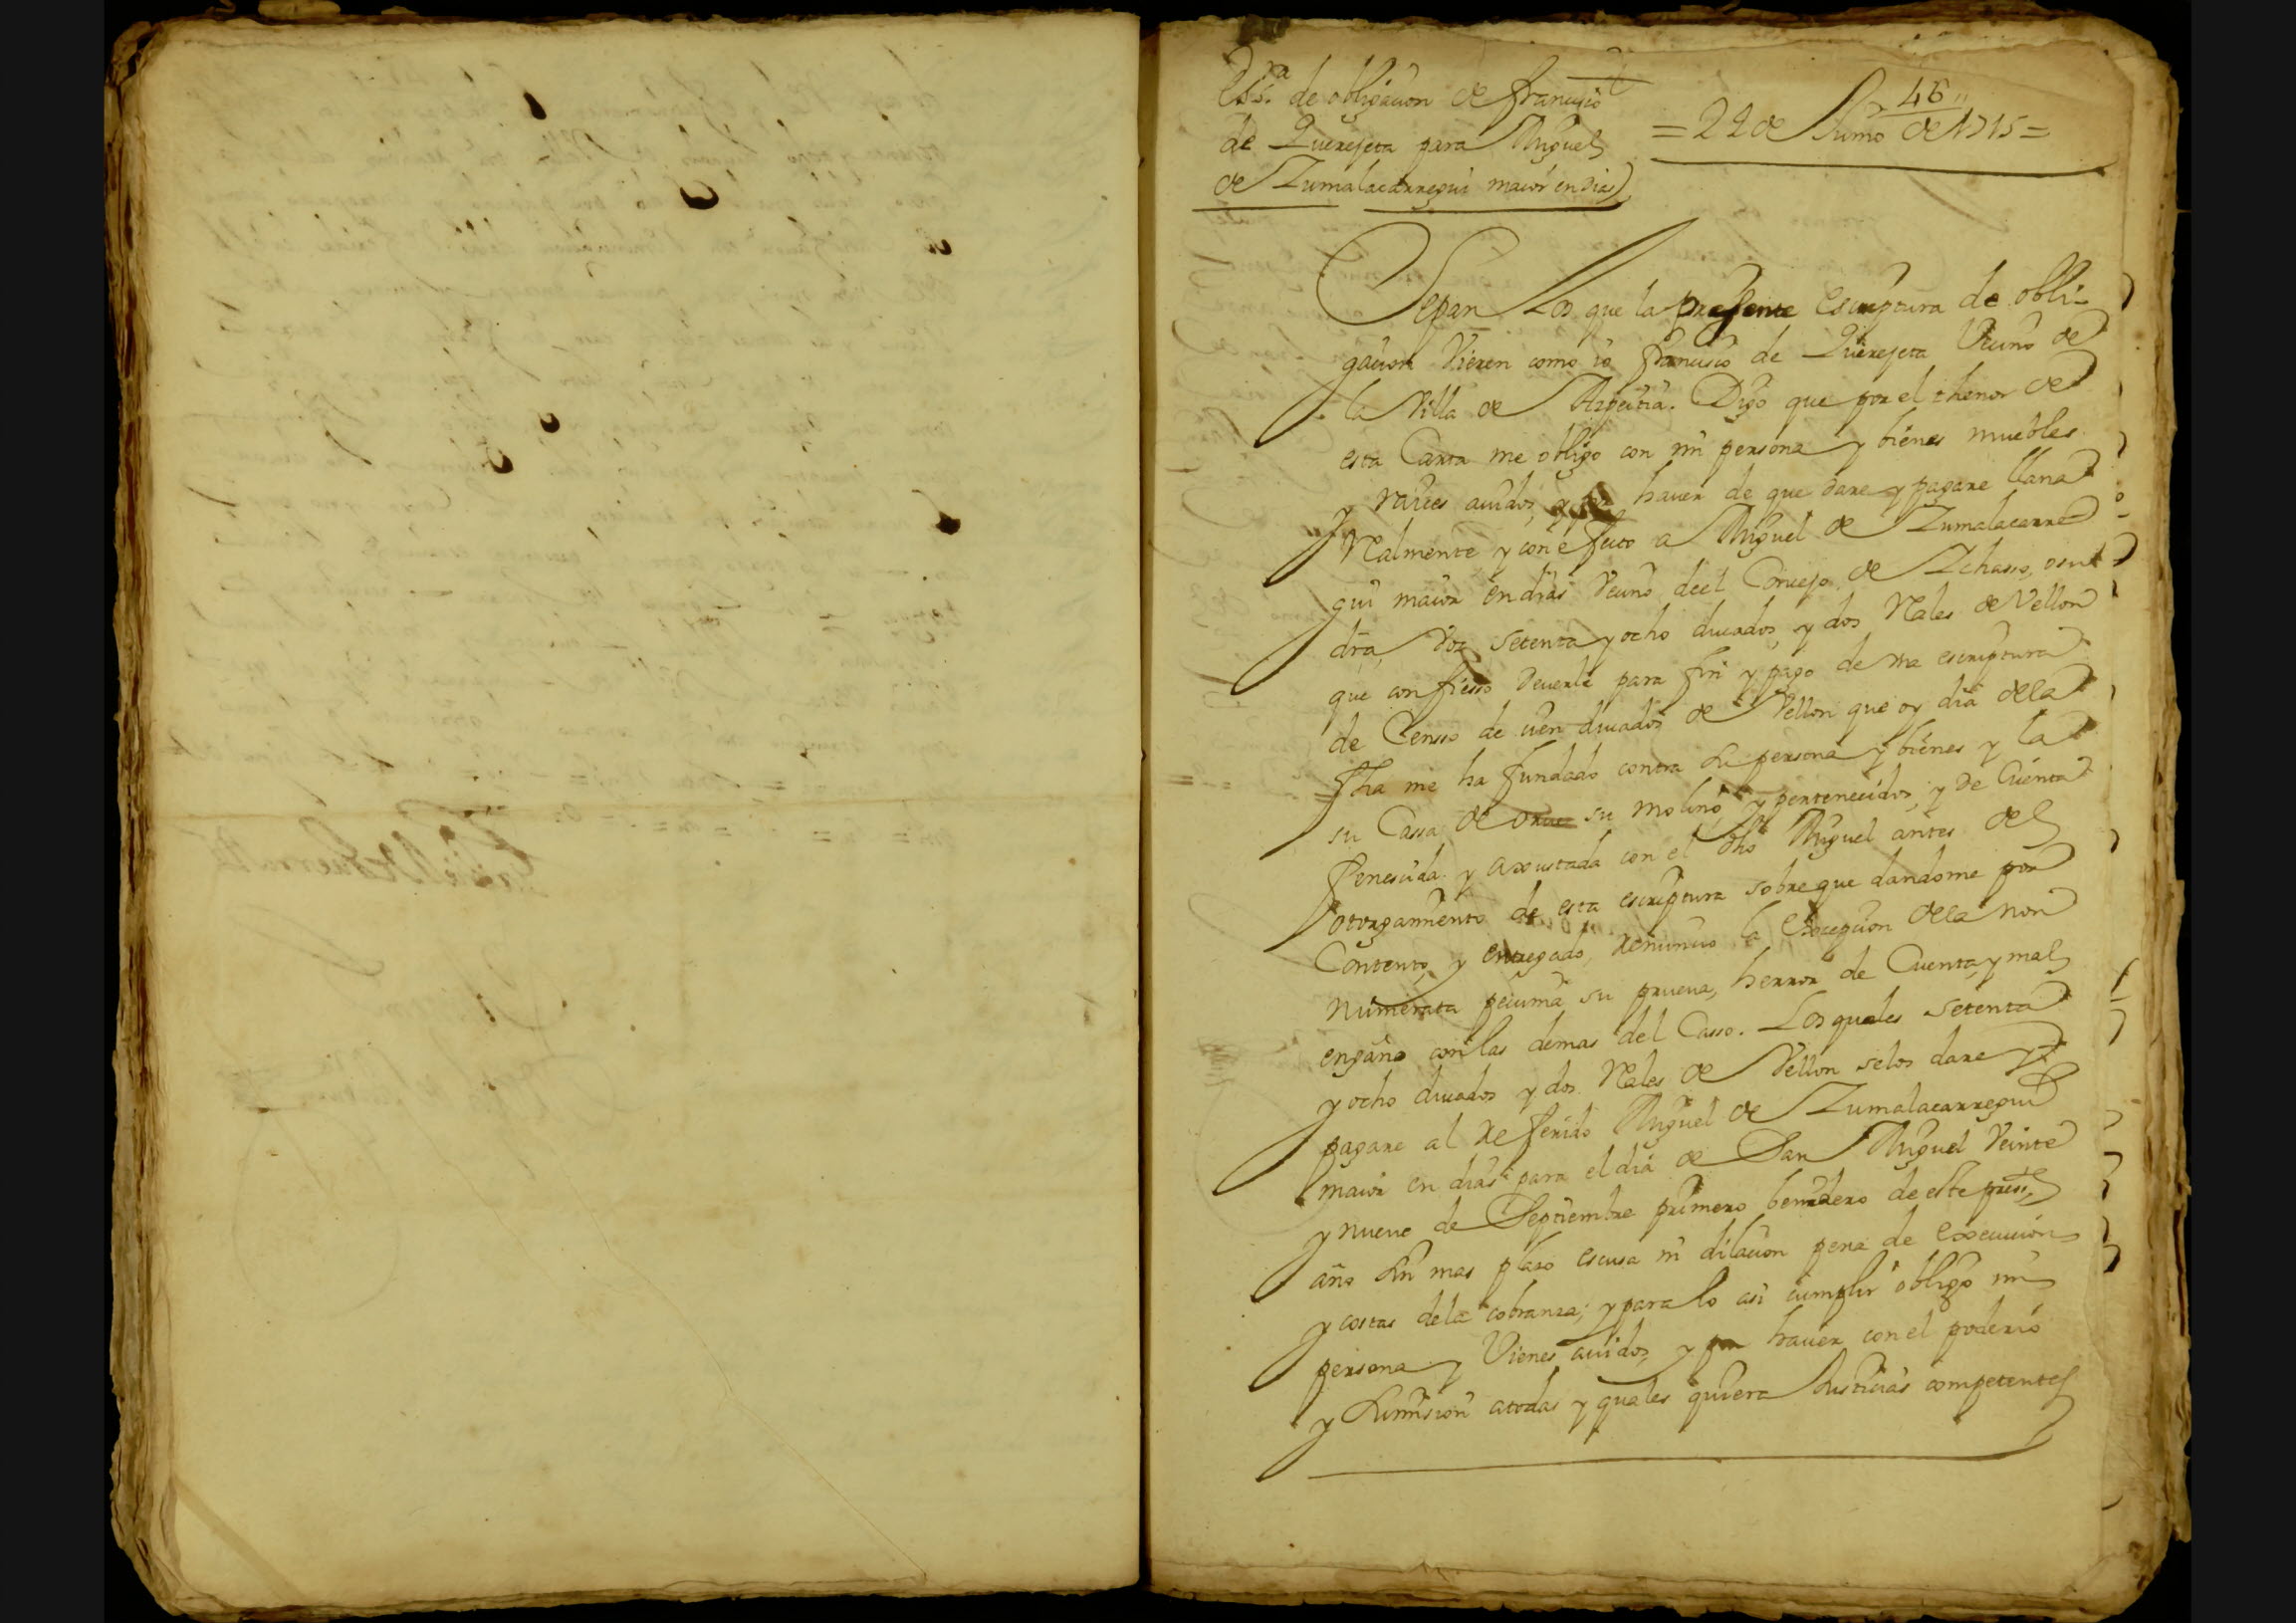 Essra de obligacion de francisco
de Querejeta para Miguel
de Zumalacarregui maior en dias
46
= 22 de Junio de 1715 =
Sepan Los que la presente escriptura de obli-
gacion Vieren como io francisco de Querejeta Vecino de
la Villa de Azpeitia. Digo que por el thenor de
esta Carta me obligo con mi persona y bienes muebles
y raices auidos, y por hauer de que dare y pagare llana
Realmente y con efecto a Miguel de Zumalacarre
gui maior en dias Vecino deel Concejo de Ichasso,
dra, Por setenta y ocho ducados, y dos Rales de Vellon
que confiesso deuerle para fin y pago de vna escriptura
de Censso de cien ducados de Vellon que oy dia dela
fha me ha fundado contra su persona y bienes y la
su Cassa de su molino, y pertenecidos, y de Cuenta
fenescida y axustada con el dho Miguel antes del
otorgamiento de esta escriptura sobre que dandome por
Contento, y entregado, renuncio la Excepcion dela non
numerata pecunia su prueua, herror de Cuenta, y mal
engaño con las demas del Casso. Los quales setenta
y ocho ducados y dos Rales de Vellon selos dare y
pagare al referido Miguel de Zumalacarregui
maior en dias para el dia de San Miguel Veinte
y nueue de Septiembre primero benidero de este presste
año sin mas plazo escusa ni dilacion pena de execucion
y costas dela cobranza; y para lo asi cumplir obligo mi
persona y Vienes auidos, y por hauer, con el poderio
y sumision atodas y quales quiera Justicias competentes